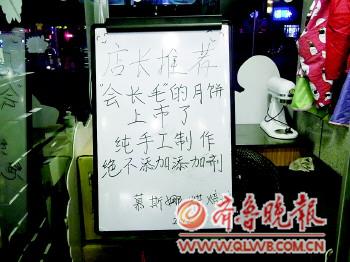 店长推荐
"会长毛"的月饼
上市了
纯手工制作
绝不添加添加剂
慕斯娜烘焙
齐鲁晚报
WWW.QLWB.COM.CN